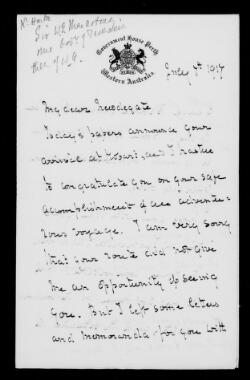 Sir W E
Government House Perth
Western Australia
July 7th 1917
My dear Newdegate
Today's papers announce your
arrival at Hobart, and I hasten
to congratulate you on your safe
accomplishment of an adventu-
rous voyage. I am very sorry
that your route did not give
me an opportunity of seeing
you. But I left some letters
and memoranda for you with